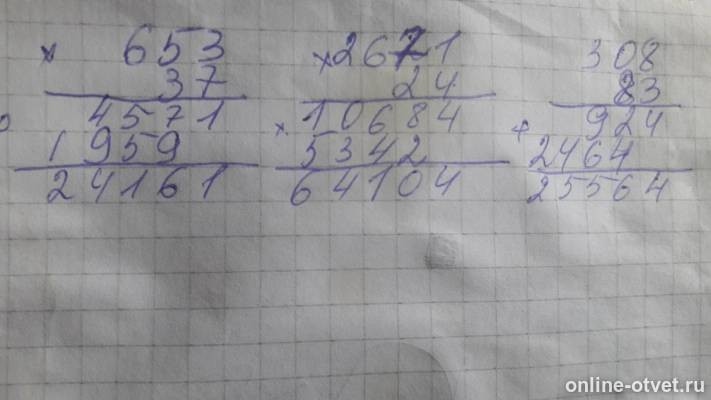 × 653
37
4571
1959
24161
× 2671
24
× 10684
5342
64104
308
83
+ 924
2464
25564
online-otvet.ru